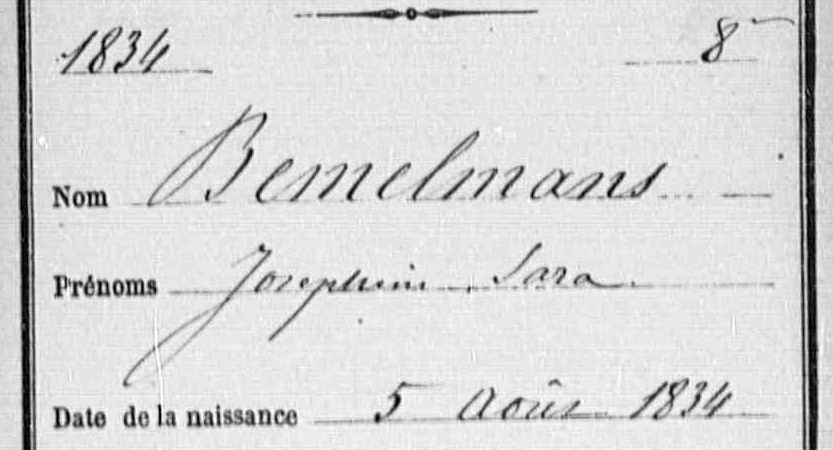 1834 8
Nom Bemelmans
Prénoms Josephine, Sara
Date de la naissance 5 Août 1834